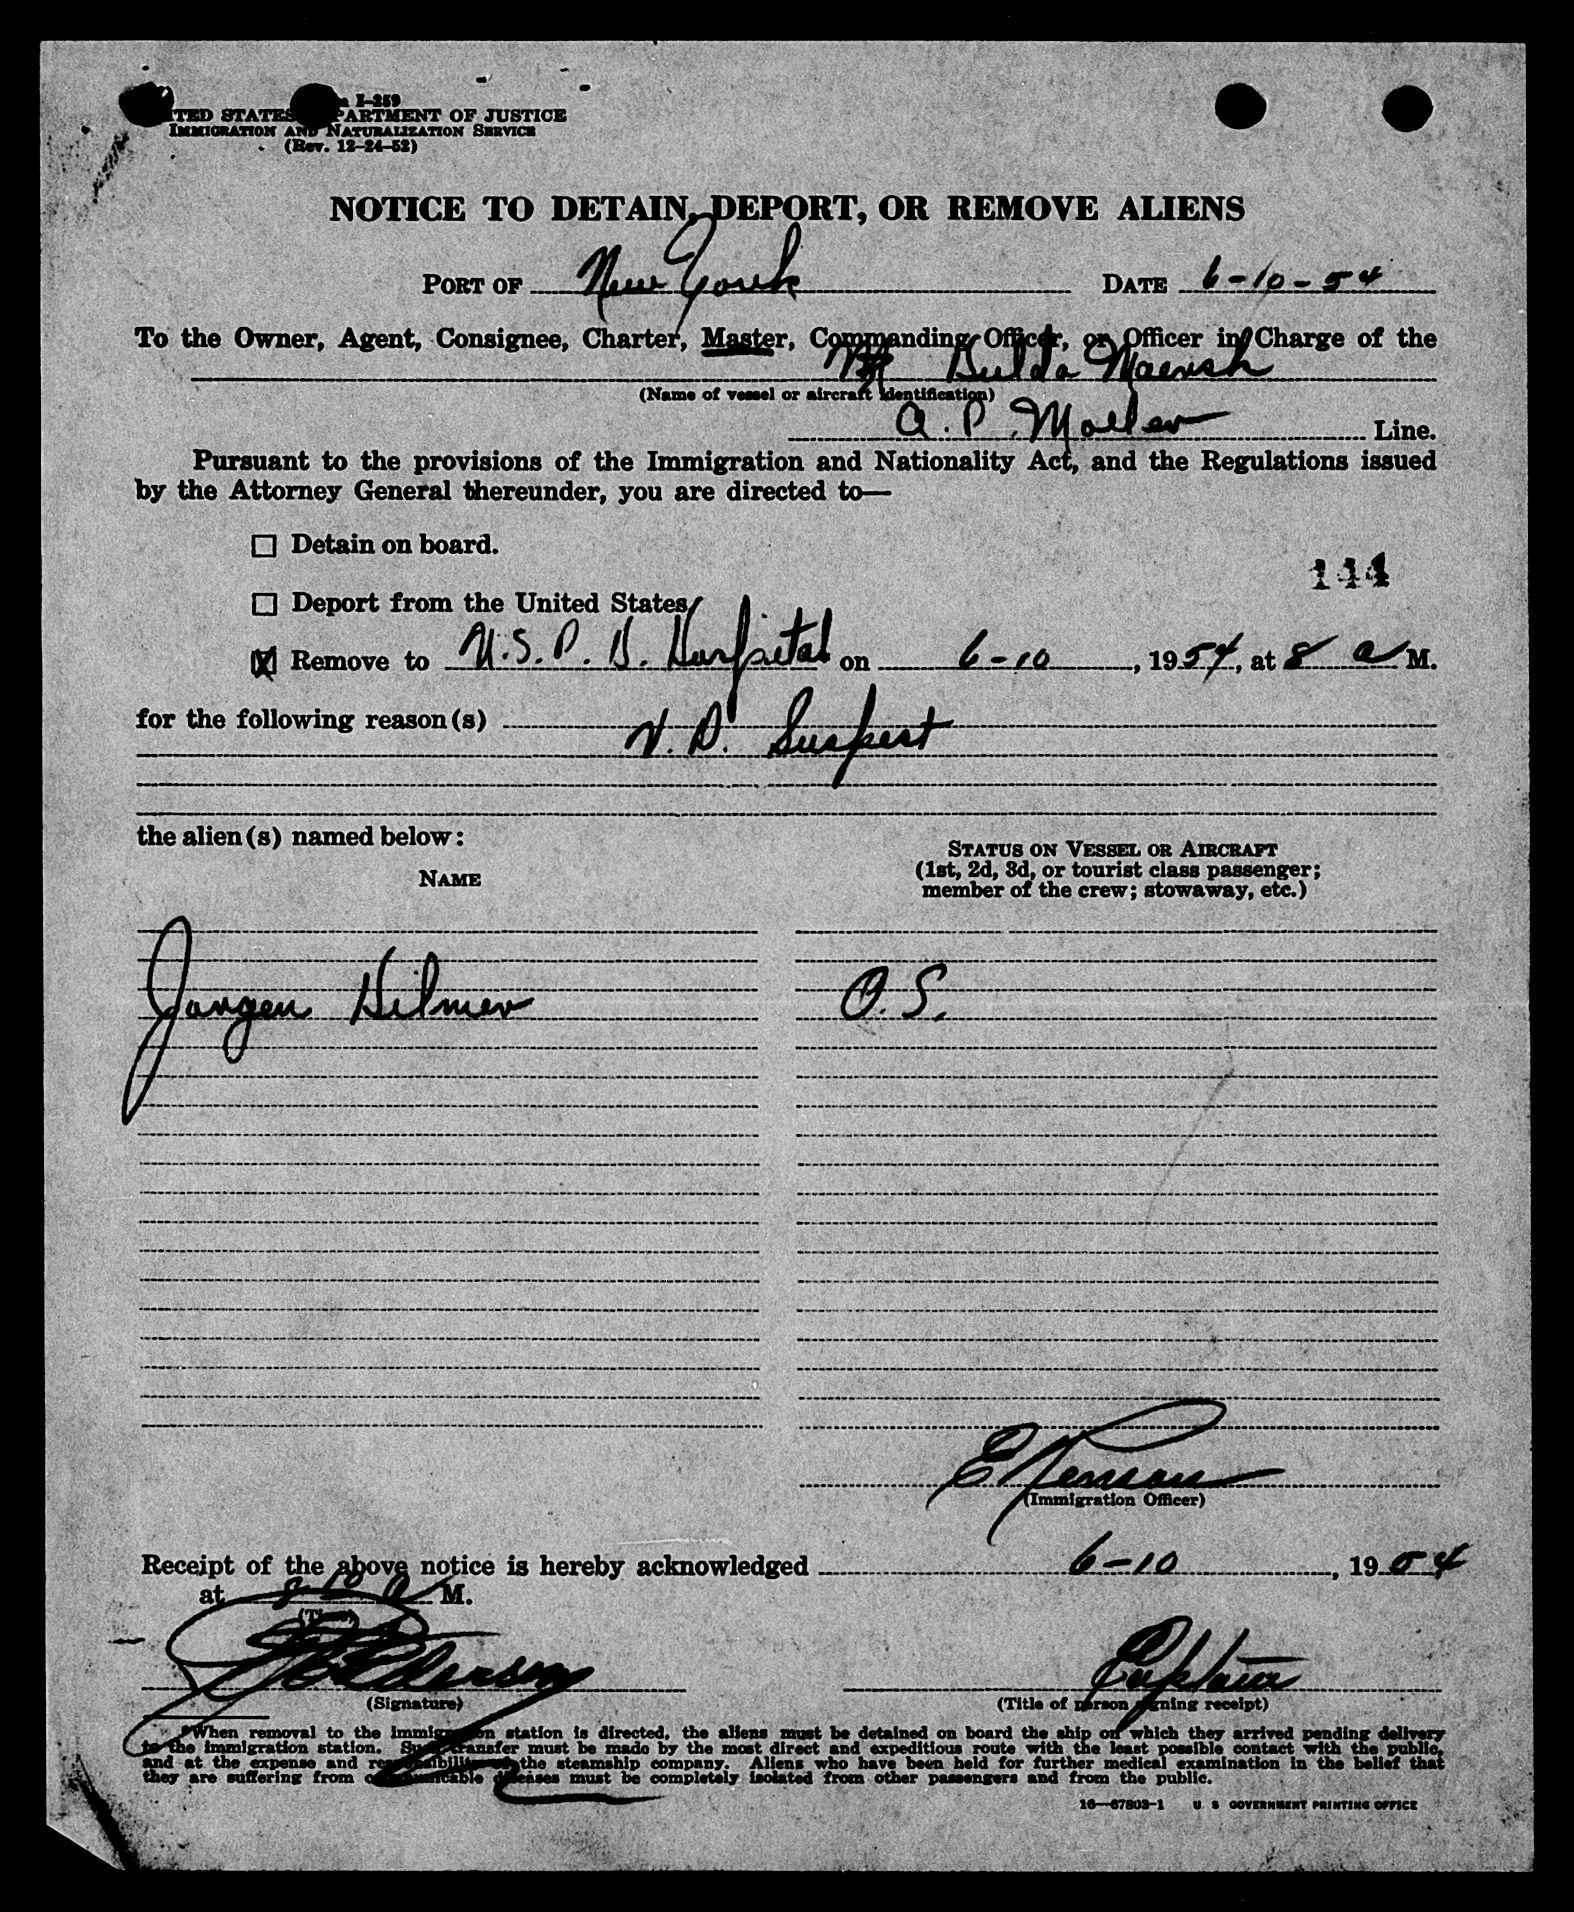 I-259
STATES DEPARTMENT OF JUSTICE
IMMIGRATION AND NATURALIZATION SERVICE
(Rev. 12-24-52)
NOTICE TO DETAIN, DEPORT, OR REMOVE ALIENS
PORT OF New York DATE 6-10-54
To the Owner, Agent, Consignee, Charter, Master, Commanding Officer, or Officer in Charge of the
Maersk
(Name of vessel or aircraft identification)
A.P. Moller Line.
Pursuant to the provisions of the Immigration and Nationality Act, and the Regulations issued
by the Attorney General thereunder, you are directed to—
Detain on board.
144
Deport from the United States
X Remove to U.S.P.H. Hospital on 6-10, 1954, at 8 a M.
for the following reason(s)
V.D. Suspect
the alien(s) named below:
STATUS ON VESSEL OR AIRCRAFT
(1st, 2d, 3d, or tourist class passenger;
member of the crew; stowaway, etc.)
NAME
Jorgen Hilmer O.S.
(Immigration Officer)
Receipt of the above notice is hereby acknowledged 6-10, 1954
at 8 10 a M.
(Time)
Captain
(Signature) (Title of person signing receipt)
*When removal to the immigration station is directed, the aliens must be detained on board the ship on which they arrived pending delivery
to the immigration station. Such transfer must be made by the most direct and expeditious route with the least possible contact with the public,
and at the expense and responsibility of the steamship company. Aliens who have been held for further medical examination in the belief that
they are suffering from communicable diseases must be completely isolated from other passengers and from the public.
16—67803-1 U. S. GOVERNMENT PRINTING OFFICE